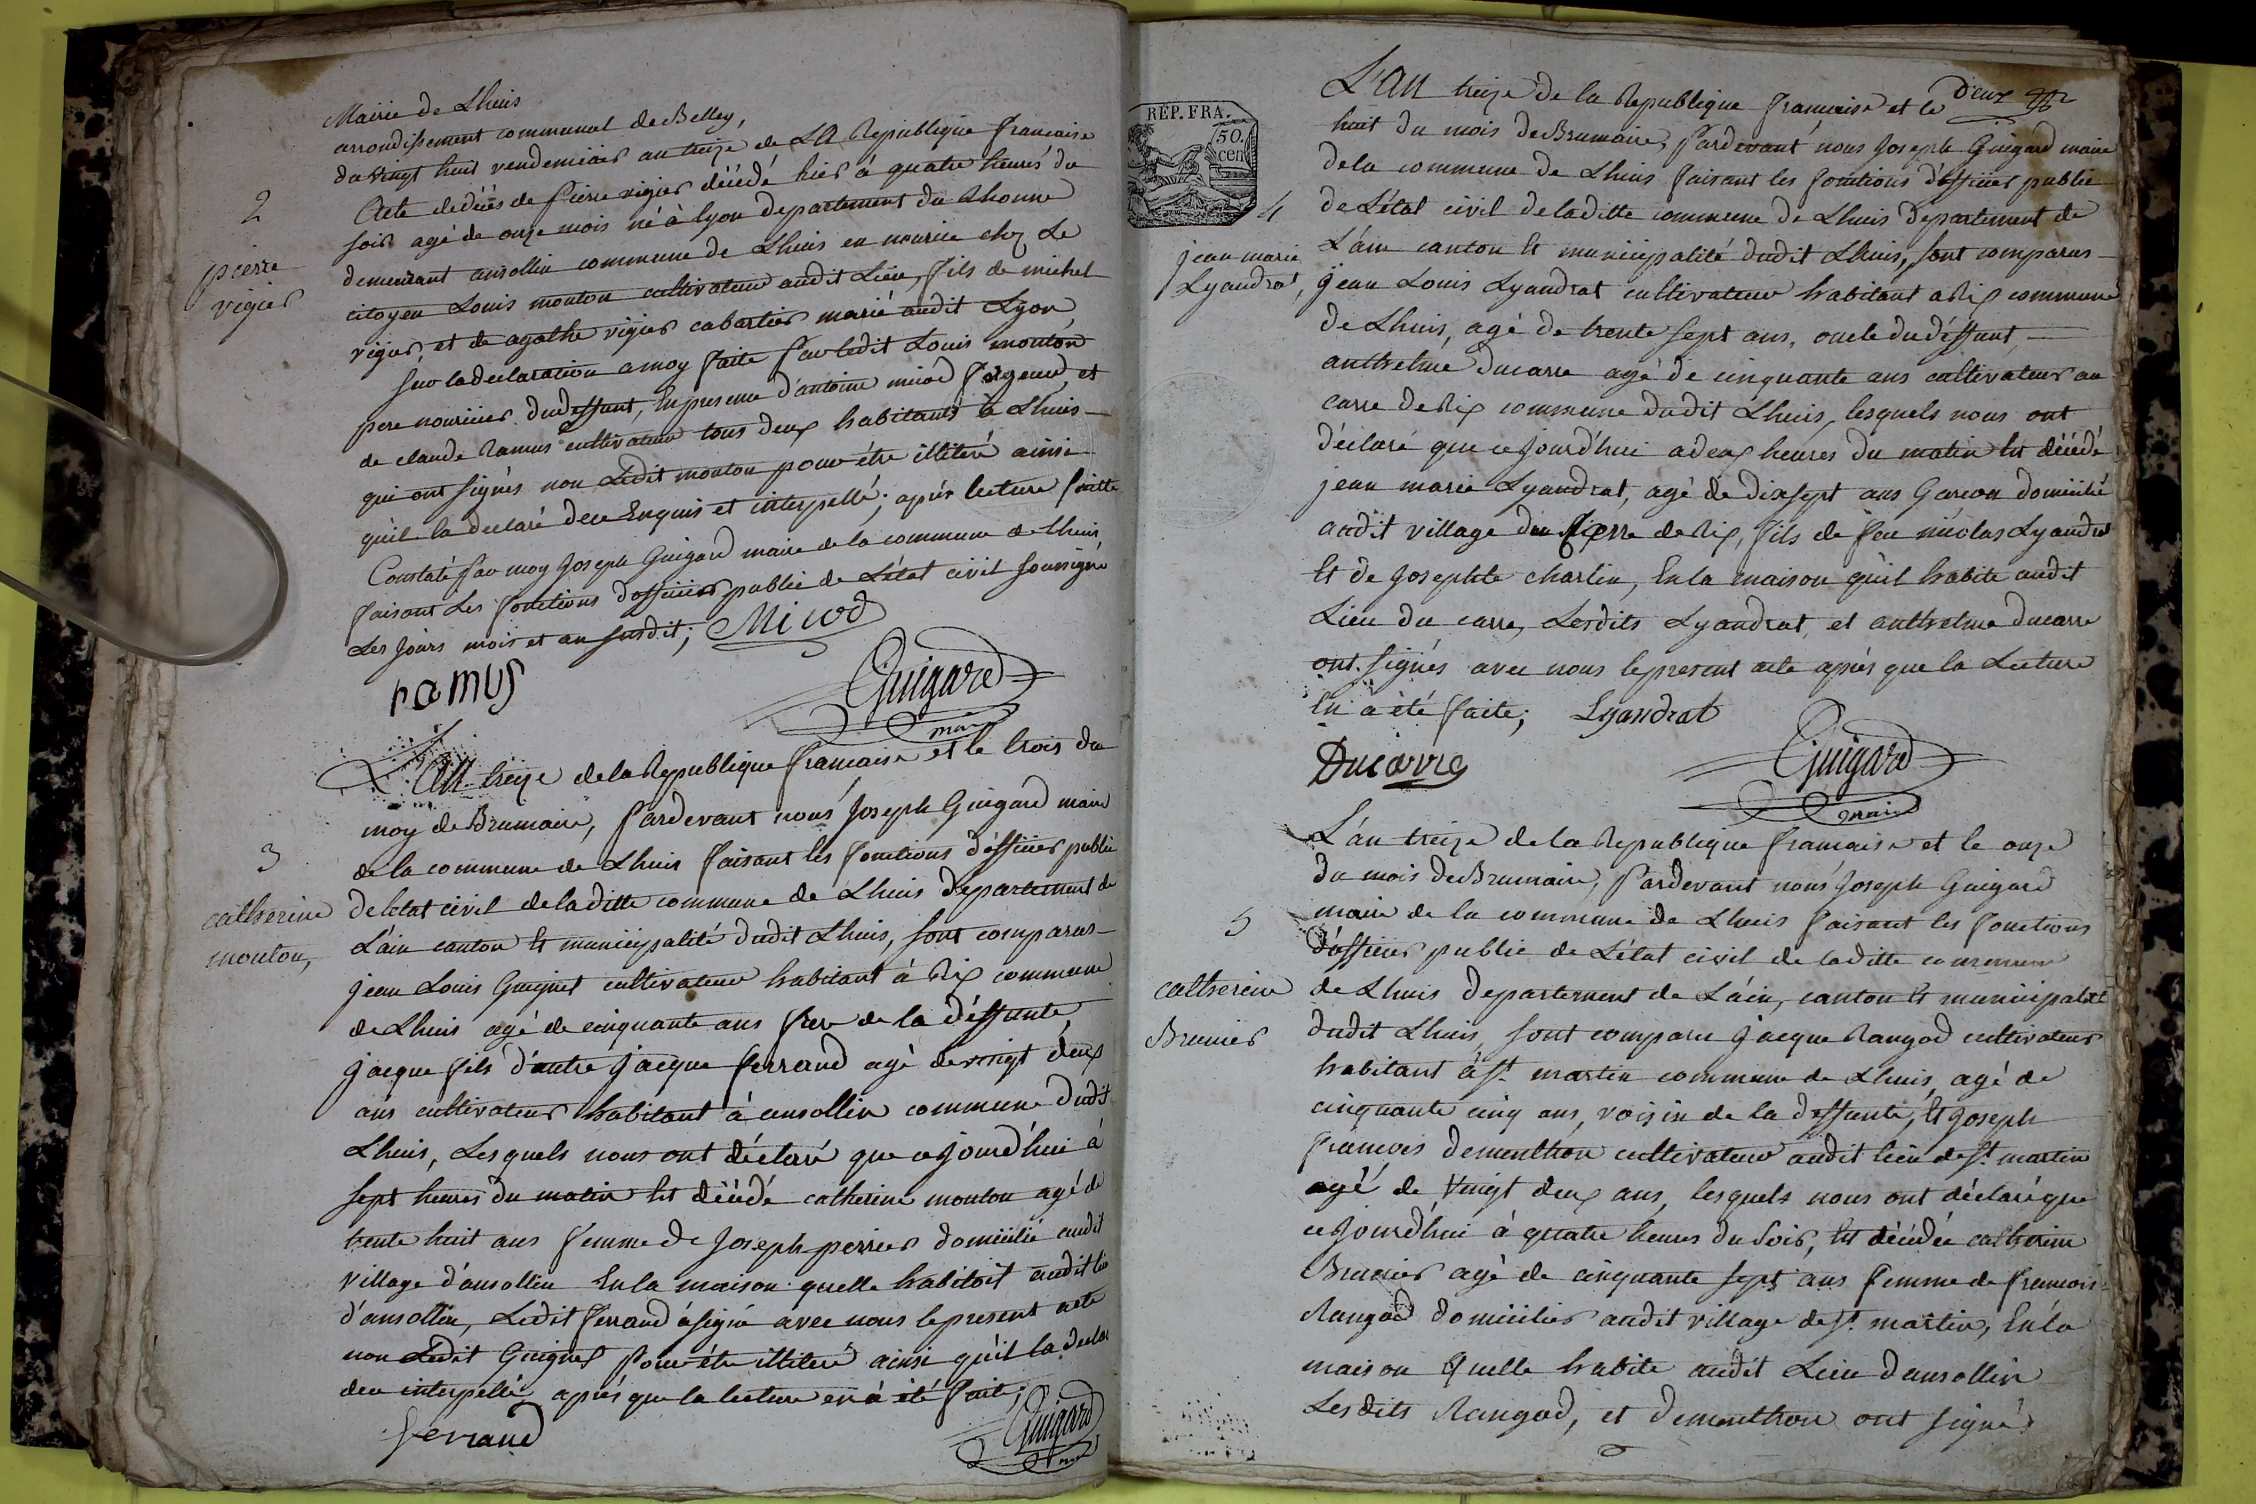 Mairie de Lhuis
arrondissement communal de Belley,
du vingt huit vendemiaire an treize de LA Republique francaise
2
Acte dedécès de pierre vigier décédé hier à quatre heures du
soir agé de onze mois né à lyon departement du Rhonne
pierre
vigier
demeurant ansollin commune de Lhuis en nourice chez Le
citoyen Louis mouton cultivateur audit Lieu, fils de michel
vigier, et de agathe vigier cabartier marié audit Lyon
sur ladeclaration amoy faite par ledit Louis mouton
pere nouricier dudeffunt, En presence d'antoine micod et
de claude Ramus cultivateur tous deux habitants à Lhuis
qui ont signés non Ledit mouton pour étre illiteré ainsi
qu'il la declaré dece Enquis et interpellé; aprés lecture faitte
Constaté par moy Joseph Guigard maire de la commune de lhuis
faisant Les fonctions d'officier public de L'état civil soussigné
Les jours mois et an susdit; Micod
ramus
Guigard
maire
L'AN treize dela Republique francaise et le trois du
moy de Brumaire, pardevant nous Joseph Guigard maire
3
de la commune de Lhuis faisant les fonctions d'officier public
catherine
mouton,
deletat civil deladitte commune de Lhuis departement de
L'ain canton Et municipalité dudit Lhuis, sont comparus
jean Louis Guignet cultivateur habitant à Rix commune
de Lhuis agé de cinquante ans de la déffunte,
jacque fils d'autre jacque ferrand agé devingt deux
ans cultivateur habitant à ansollin commune dudit
Lhuis, Lesquels nous ont déclaré que cejourd'hui à
sept heures du matin Est décédé catherine mouton agé de
trente huit ans femme de Joseph perrier domicilié audit
village d'ansollin En la maison quelle habitoit audit lieu
d'ansollin, Ledit ferrand àsigné avec nous lepresent acte
non Ledit Guignet pour étre illiteré ainsi qu'il la declaré
dece interpellé aprés que la lecture en à été faite;
ferrand
Guigard
maire
Deux
REP. FRA.
50.
cen
L'AN treize de la Republique francaise et le
huit du mois deBrumaire, pardevant nous Joseph Guigard maire
dela commune de Lhuis faisant les fonctions d'officier public
4
de L'état civil deladitte commune de Lhuis departement de
L'ain canton Et municipalité dudit Lhuis, sont comparus
jean marie
Lyandrat,
jean Louis Lyandrat cultivateur habitant aRix commune
de Lhuis, agé de trente sept ans, oncle dudéffunt,
anthelme Ducarre agé de cinquante ans cultivateur au
carre deRix commune dudit Lhuis, lesquels nous ont
déclaré que cejourd'hui adeux heures du matin Est décédé
jean marie Lyandrat, agé de dixsept ans Garcon domicilié
audit village du de Rix, fils de feu nicolas Lyandrat
Et de Josephte charlin, En la maison qu'il habite audit
Lieu du carre, Lesdits Lyandrat, et anthelme Ducarre
ont signés avec nous lepresent acte aprés que la Lecture
En à été faite; Lyandrat
Ducarre
Guigard
maire
L'an treize de la Republique francaise et le onze
du mois deBrumaire, pardevant nous Joseph Guigard
maire de la commune de Lhuis faisant les fonctions
5
d'officier public de L'état civil de laditte commune
catherine
Brunier
de Lhuis departement de L'ain, canton Et municipalité
dudit Lhuis, sont comparu jacque Rangod cultivateur
habitant à St. martin commune de Lhuis, agé de
cinquante cinq ans, voisin de la deffunte, Et Joseph
francois dementhon cultivateur audit lieu de St. martin
agé de vingt deux ans, lesquels nous ont déclaré que
cejourd'hui à quatre heures du soir, Est décédée catherine
Brunier agé de cinquante sept ans femme de francois
Rangod domicilier audit village de St. martin, En la
maison quelle habite audit Lieu d'ansollin
Les dits Rangod, et dementhon ont signés